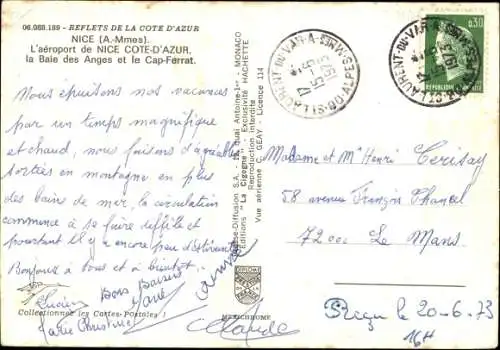 06.088.189 - REFLETS DE LA COTE D'AZUR
NICE (A.-Mmes)
L'aéroport de NICE COTE-D'AZUR,
la Baie des Anges et le Cap-Ferrat.
Nous épuisons nos vacances
par un temps magnifique
et chaud, nous faisons d'agréables
sorties en montagne en plus
des bains de mer, la circulation
commence à se faire difficile et
pourtant il y a encore peu d'estivants
Bonjour à tous et à bientôt.
Lucien Bons Baisers
Marie Christine
Claude
Collectionnez les Cartes-Postales !
MEXICHROME
"La Cigogne" - Exclusivité HACHETTE
Reproduction Interdite
Vue aérienne C. GEAY - Licence 114
0,30
REPUBLIQUE FRANCAISE
Madame et Mr Henri Cerisay
58 avenue François Chancel
72000 Le Mans
Reçu le 20-6-73
16H